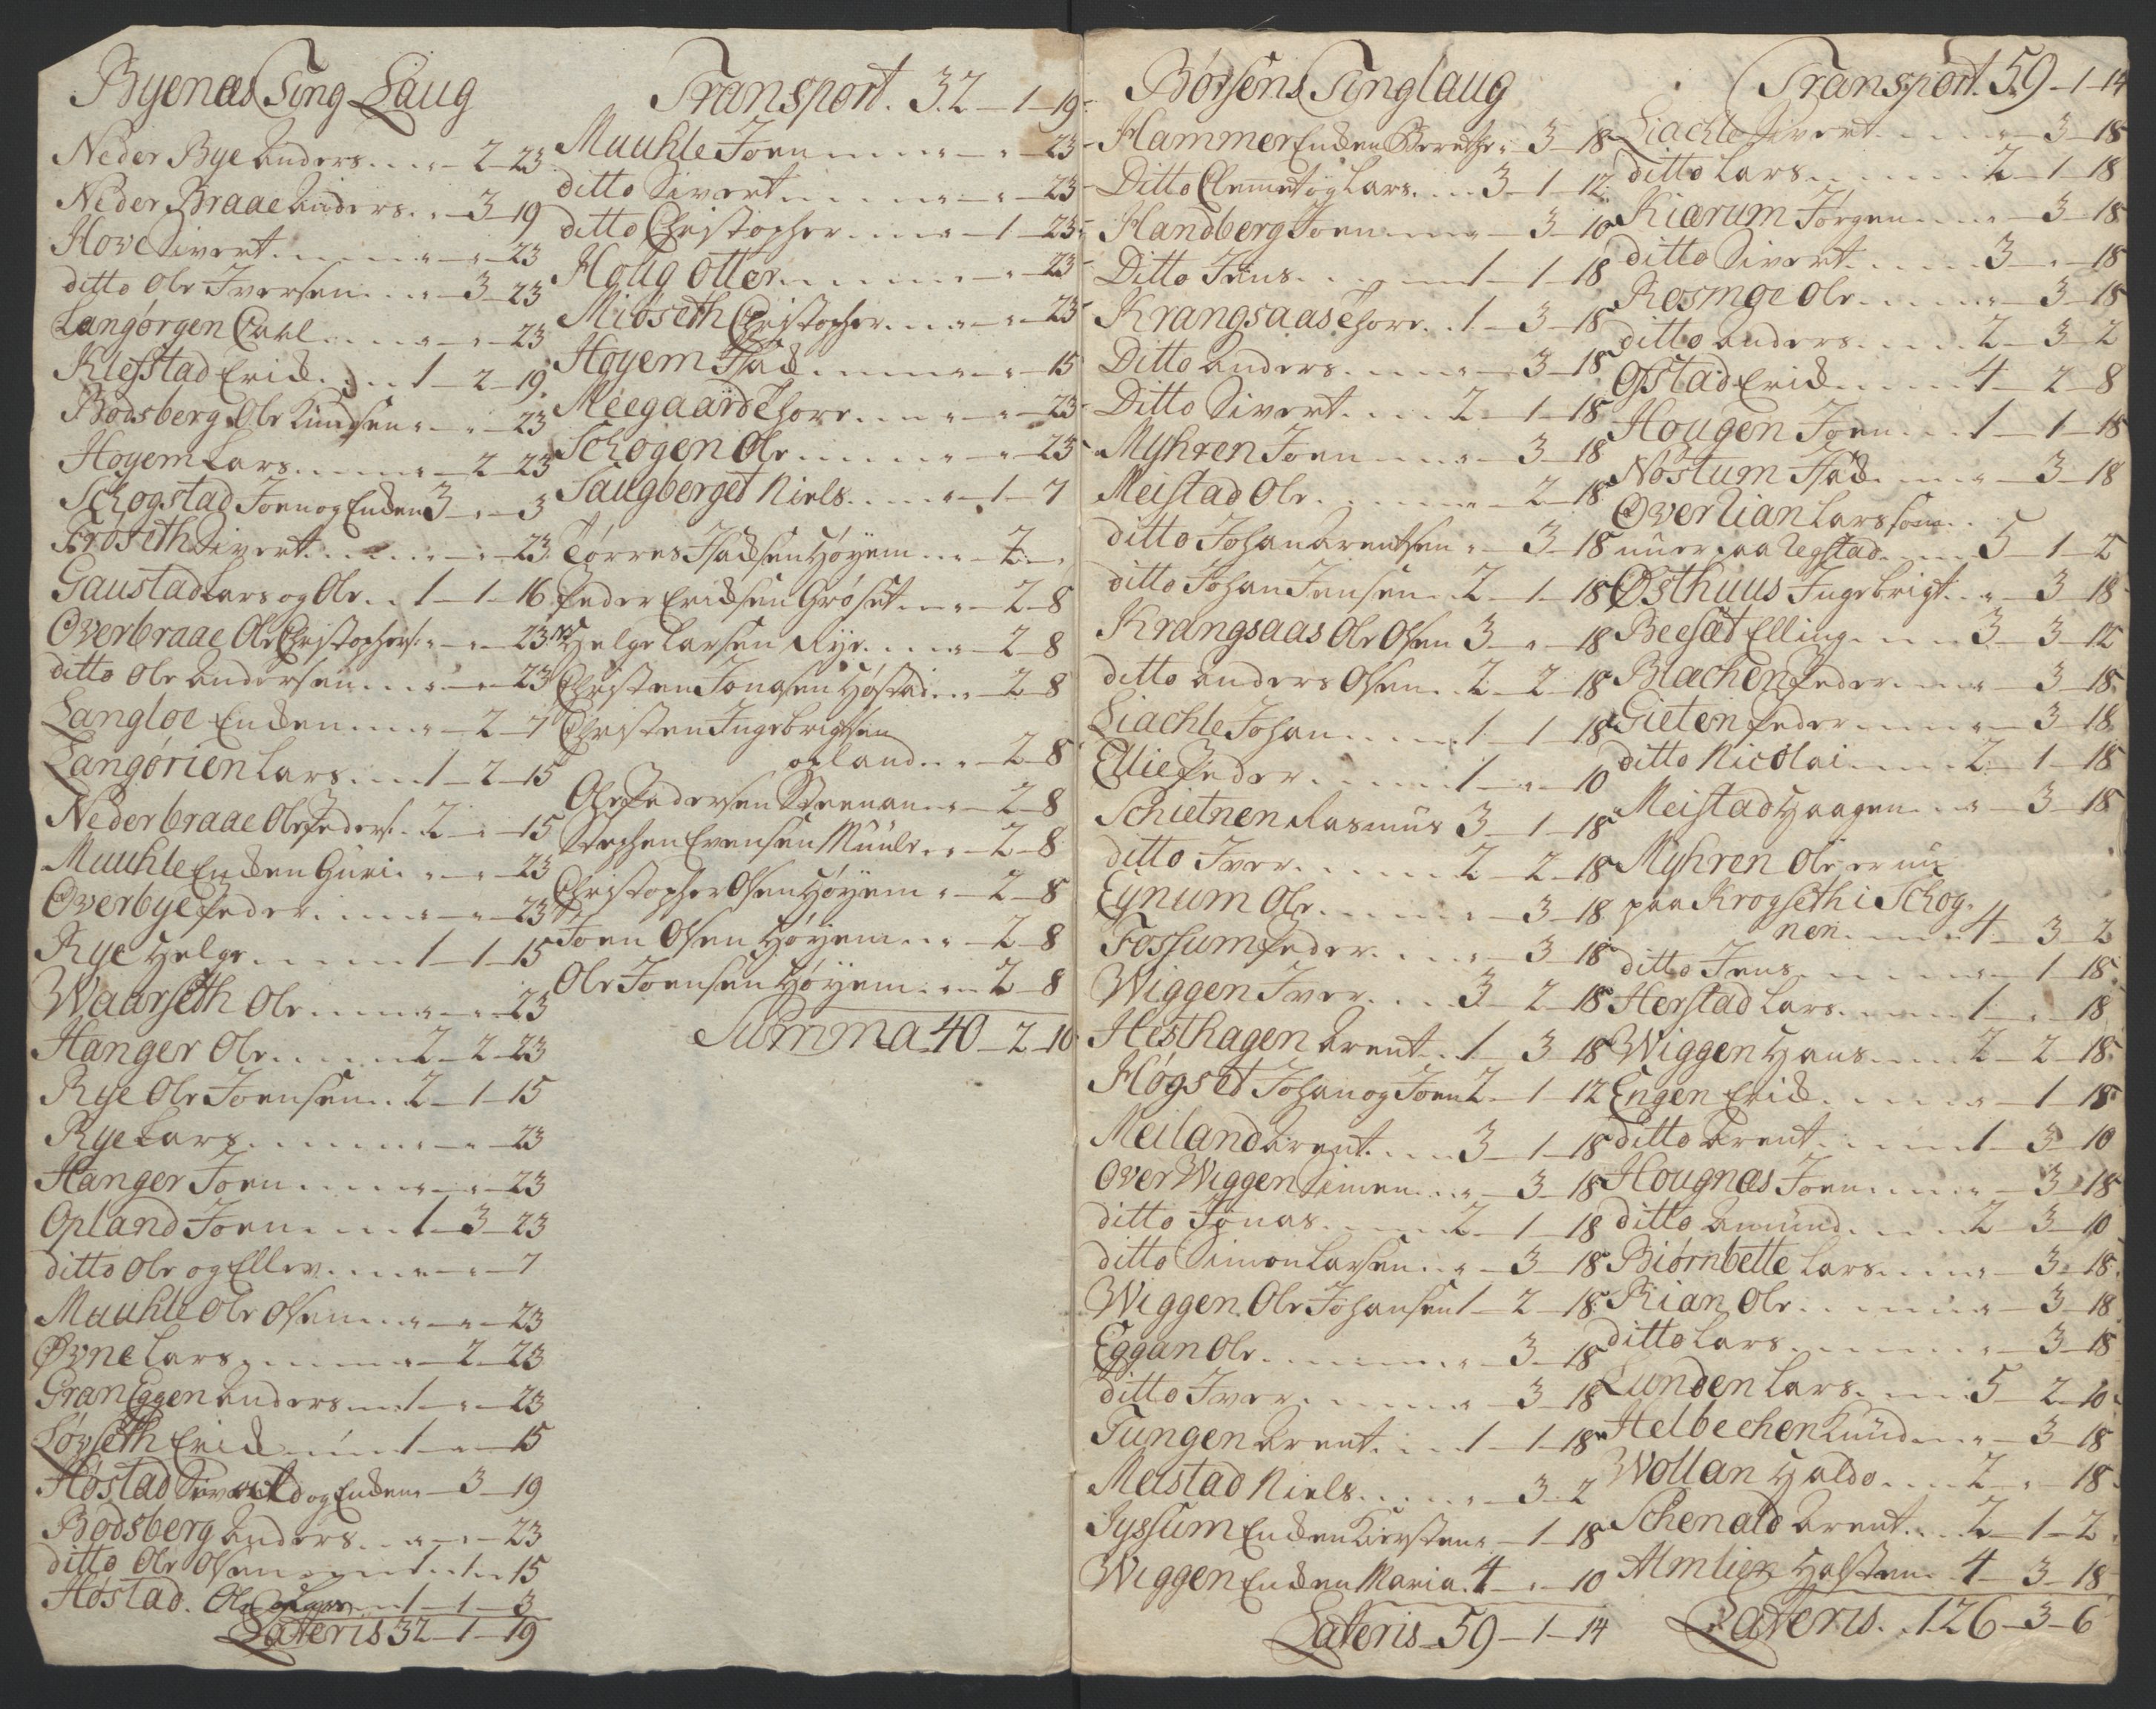 Byenæs Ting Laug
Neder Bye Anders . . . " — 2 — 23
Neder Braae Anders . . " — 3 — 19
Hove Sivert . . . . . " — " — 23
ditto Ole Iversen . . . " — 3 — 23
Langørgen Carl . . . . " — " — 23
Klefstad Erich . . . 1 — 2 — 19
Bodsberg Ole Knudsen " — " — 23
Høyem Lars . . . . . " — 2 — 23
Schogstad Joen og Enchen 3 — " — 3
Frøseth Sivert . . . . . " — " — 23
Gaustad Lars og Ole . . 1 — 1 — 16
Overbraae Ole Christophers: " — " — 23
ditto Ole Andersen . . . " — " — 23
Langløe Enchen . . . " — 2 — 7
Langørien Lars . . . 1 — 2 — 15
Nederbraae Ole Peders: . 2 — " — 15
Muuhle Enchen Guri . " — " — 23
Overbye Peder . . . . " — " — 23
Rye Helge . . . . . 1 — 1 — 15
Waarseth Ole . . . . " — " — 23
Hanger Ole . . . . . 2 — 2 — 23
Rye Ole Joensen . . 2 — 1 — 15
Rye Lars . . . . . . " — " — 23
Hanger Joen . . . . " — " — 23
Opland Joen . . . . 1 — 3 — 23
ditto Ole og Ellev . . . " — " — 7
Muuhle Ole Olsen . . . " — " — 23
Øvne Lars . . . . . " — 2 — 23
Gran Eggen Anders . . 1 — " — 23
Løvseth Erich . . . 1 — " — 15
Høstad og Enchen " — 3 — 19
Bodsberg Anders . . " — " — 23
ditto Ole Olsen . . . 1 — 1 — 15
Høstad . Ole . . . 1 — 1 — 3
Lateris 32 — 1 — 19
Transport . 32 — 1 — 19
Muuhle Joen . . . . " — " — 23
ditto Sivert . . . . . " — " — 23
ditto Christopher . . . " — 1 — 23
Houg Otter . . . . . " — " — 23
Miøseth Christopher . . . " — " — 23
Høyem Isach . . . . . " — " — 15
Meegaard Thore . . . " — " — 23
Schogen Ole . . . . . " — " — 23
Saugberget Niels . . . . " — 1 — 7
Tørres Isachsen Høyem . . " — 2 — "
Peder Erichsen Grøset . . . " — 2 — 8
Helge Larsen Rye . . . . " — 2 — 8
Christen Jonasen Høstad . . " — 2 — 8
Christen Ingebrigtsen
opland . . . " — 2 — 8
Ole Pedersen Steenan . . " — 2 — 8
Stephen Evensen Muule . . " — 2 — 8
Christopher Olsen Høyem " — 2 — 8
Joen Olsen Høyem . . . " — 2 — 8
Ole Joensen Høyem . . . " 2 — 8
Summa 40 — 2 — 10
Børsens Tinglaug
Hammer Enchen Berethe " 3 — 18
Ditto Clemet og Lars . . . 3 — 1 — 12
Handberg Joen . . . . " — 3 — 10
Ditto Jens . . . . . 1 — 1 — 18
Krangsaas Thore . . 1 — 3 — 18
Ditto Anders . . . . . " — 3 — 18
Ditto Sivert . . . . 2 — 1 — 18
Myhren Joen . . . . " — 3 — 18
Meistad Ole . . . . . . " — 2 — 18
ditto Johan Arentsen " — 3 — 18
ditto Johan Jensen . . 2 — 1 — 18
Krangsaas Ole Olsen 3 — " — 18
ditto Anders Olsen . . 2 — 2 — 18
Liachle Johan . . . . . 1 — 1 — 18
Ellie Peder . . . . . 1 — " — 10
Schietnen Rasmus 3 — 1 — 18
ditto Iver . . . . . . 2 — 2 — 18
Eynum Ole . . . . . . " — 3 — 18
Fossum Peder . . . . " — 3 — 18
Wiggen Iver . . . . 3 — 2 — 18
Hesthagen Arent . . 1 — 3 — 18
Høgset Johan og Joen 2 — 1 — 12
Meiland Arent . . . . 3 — 1 — 18
Over Wiggen Simen . . . " — 3 — 18
ditto Jonas . . . . . 2 — 1 — 18
ditto Simon Larsen . . " — 3 — 18
Wiggen Ole Johansen 1 — 2 — 18
Eggan Ole . . . . . . . " — 3 — 18
ditto Iver . . . . . . " — 3 — 18
Tungen Arent . . . 1 — 1 — 18
Meistad Niels . . . . . " — 3 — 2
Syssum Enchen Kirsten " — 1 — 18
Wiggen Enchen Maria . 4 — " — 10
Lateris 59 — 1 — 14
Transport 59 — 1 — 14
Liachle Sivert . . . . . " — 3 — 18
ditto Lars . . . . . . 2 — 1 — 18
Kiærum Jørgen . . . . " — 3 — 18
ditto Sivert . . . . . 3 — " — 18
Rosmoe Ole . . . . . . " — 3 — 18
ditto Anders . . . . 2 — 3 — 2
Ofstad Erich . . . . . 4 — 2 — 8
Hougen Joen . . . 1 — 1 — 18
Nostum Isach . . . . " — 3 — 18
Overlian Lars som . .
nu er paa Uegstad . . . . 5 — 1 — 2
Østhuus Ingebrigt . . " — 3 — 18
Beesæt Elling . . . . 3 — 3 — 12
Blachen Peder . . . . " — 3 — 18
Gieten Peder . . . . . " — 3 — 18
ditto Nicolai . . . . 2 — 1 — 18
Meistad Haagen . . . " — 3 — 18
Myhren Ole er nu
paa Krogseth i Schog-
nen . . . . . 4 — 3 — 2
ditto Jens . . . . . . " — 1 — 18
Herstad Lars . . . . . 1 — " — 18
Wiggen Hans . . . . 2 — 2 — 18
Engen Erich . . . . . " — 1 — 18
ditto Arent . . . . . 1 — 3 — 10
Hougnæs Joen . . . . . " — 3 — 18
ditto Amund . . . . 2 — 3 — 10
Biørnbette Lars . . . . " — 3 — 18
Rian Ole . . . . . . . " — 3 — 18
ditto Lars . . . . . . . " — 3 — 18
Lunden Lars . . . . 5 — 2 — 10
Helbechen Knud . . . " — 3 — 18
Wollan Haldo . . . . 2 — " — 18
Schenald Arent . . . 2 — 1 — 2
Almlien Halsten . . 4 — 3 — 18
Lateris . . 126 — 3 — 6